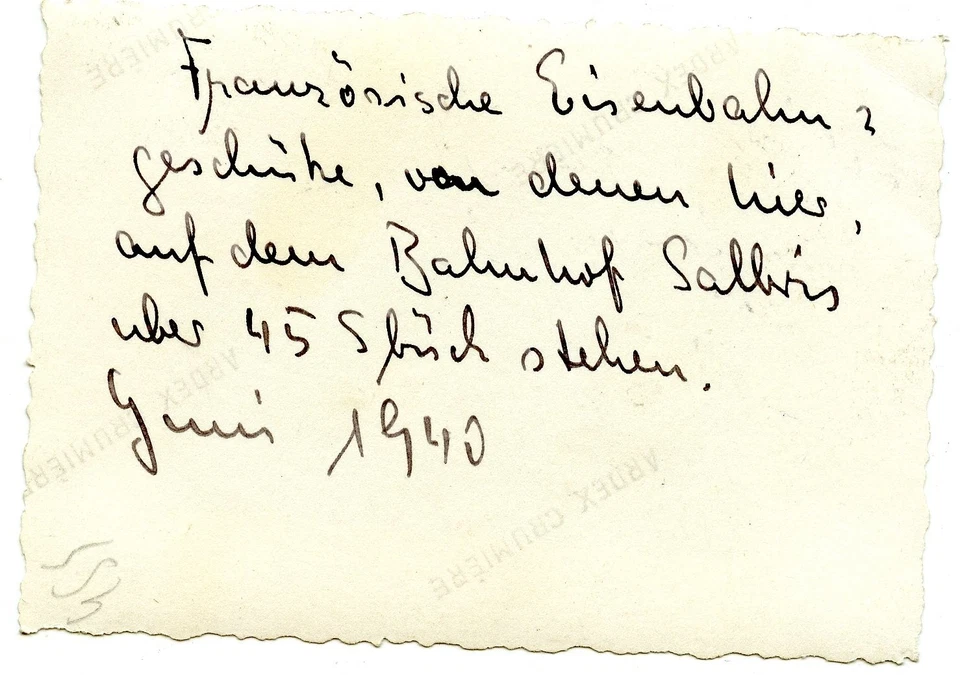 Französische Eisenbahn=
geschütze, von denen hier,
auf dem Bahnhof Salbris
über 45 Stück stehen.
Juni 1940
ARDEX CRUMIÈRE
ARDEX CRUMIÈRE
ARDEX CRUMIÈRE
CRUMIÈRE